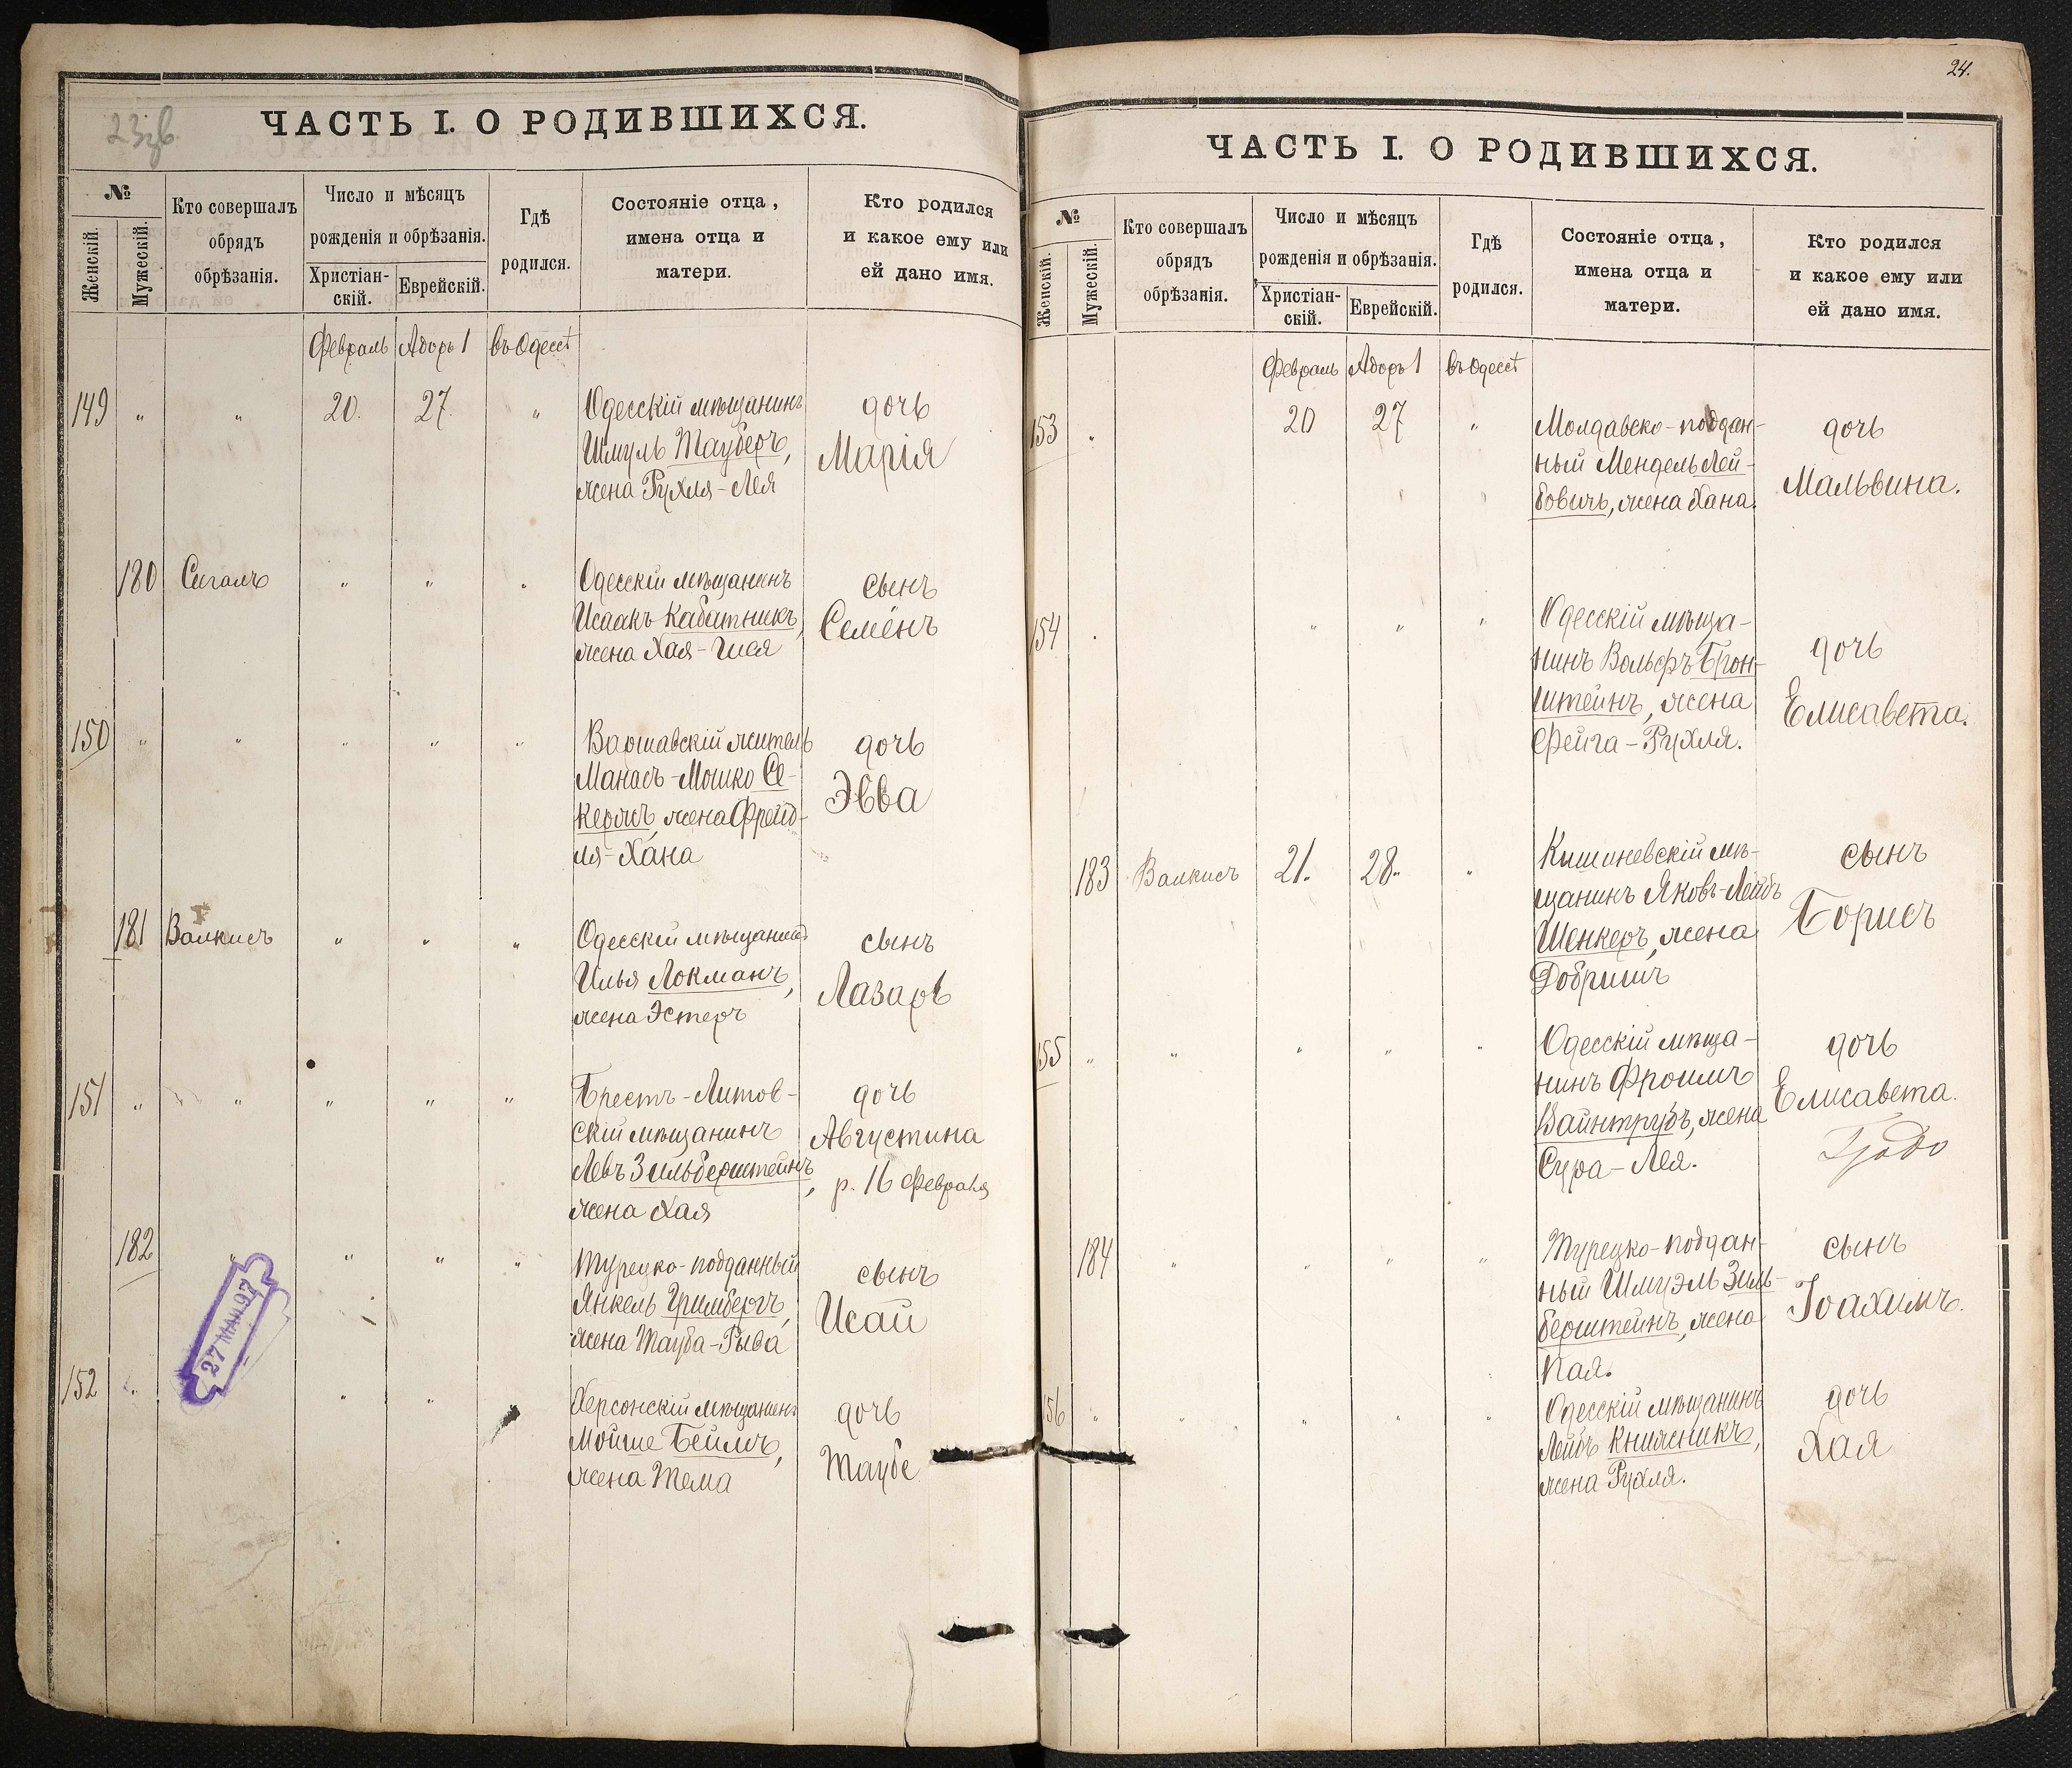 23 зв
ЧАСТЬ I. О РОДИВШИХСЯ.
№
Женскій.
Мужескій.
Кто совершалъ
обрядъ
обрѣзанія.
Число и мѣсяцъ
рожденія и обрѣзанія.
Христіан-
скій.
Еврейскій.
Гдѣ
родился.
Состояніе отца,
имена отца и
матери.
Кто родился
и какое ему или
ей дано имя.
Февраль Адоръ 1 въ Одессѣ
149 " " 20. 27. " Одесскій мѣщанинъ дочь
Шмуль Тауберъ, Марія
жена Рухля-Лея
180 Сигалъ " " " Одесскій мѣщанинъ сынъ
Исаакъ Кабатникъ, Семёнъ
жена Хая-
150 " " " " " Варшавскій житель дочь
Манасъ-Мошко Се- Эвва
жена Фрейд-
ля-Хана
181 Валкисъ " " " Одесскій мѣщанинъ сынъ
Илья Локманъ, Лазарь
жена Эстеръ
151 " " " " " Брестъ-Литов- дочь
скій мѣщанинъ Августина
Левъ Зильберштейнъ, р. 16 февраля
жена Хая
182 " " " " Турецко-подданный сынъ
Янкель Гримбергъ, Исай
жена Тауба-
27 МАЯ 97
152 " " " Херсонскій мѣщанинъ дочь
Мойше Беймъ, Таубе
жена Тема
24.
ЧАСТЬ I. О РОДИВШИХСЯ.
№
Женскій.
Мужескій.
Кто совершалъ
обрядъ
обрѣзанія.
Число и мѣсяцъ
рожденія и обрѣзанія.
Христіан-
скій.
Еврейскій.
Гдѣ
родился.
Состояніе отца,
имена отца и
матери.
Кто родился
и какое ему или
ей дано имя.
Февраль Адоръ 1 въ Одессѣ
153 " 20 27 " Молдавско-поддан- дочь
ный Мендель Лей- Мальвина.
бовичъ, жена Хана.
154 " " " " Одесскій мѣща-
нинъ Вольфъ Брон- дочь
штейнъ, жена Елисавета.
Фейга-Рухля.
183 Валкисъ 21. 28. " Кишиневскій мѣ- сынъ
щанинъ Яковъ-Лейбъ Борисъ
Шенкеръ, жена
Добришъ
155 " " " " " Одесскій мѣща- дочь
нинъ Фроимъ Елисавета.
Вайнтрубъ, жена
Сура-Лея.
184 " " " " Турецко-поддан- сынъ
ный Шмуэль Зиль- Іоахимъ.
берштейнъ, жена
Пая.
156 " " " " " Одесскій мѣщанинъ дочь
Лейбъ Княжникъ, Хая
жена Рухля.